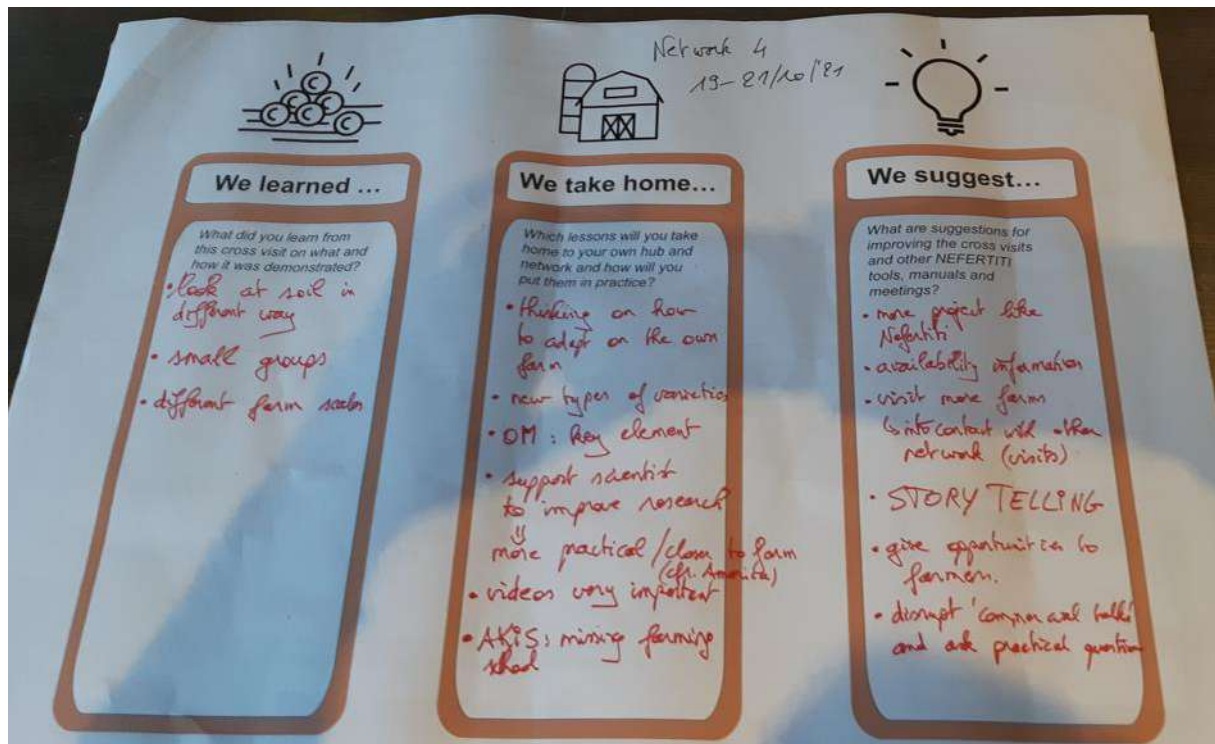 Network 4
19-21/10/'21
We learned ...
What did you learn from
this cross visit on what and
how it was demonstrated?
• look at soil in
different way
• small groups
• different farm scales
We take home...
Which lessons will you take
home to your own hub and
network and how will you
put them in practice?
• thinking on how
to adapt on the own
farm
• new types of varieties
• OM : key element
• support scientist
to improve research
⇓
more practical / closer to farm
(cfr. America)
• videos very important
• AKIS : missing farming
We suggest...
What are suggestions for
improving the cross visits
and other NEFERTITI
tools, manuals and
meetings?
• more project like
Nefertiti
• availability information
• visit more farms
↳ into contact with other
network (visits)
• STORY TELLING
• give opportunities to
farmers.
• disrupt 'commercial talks'
and ask practical question